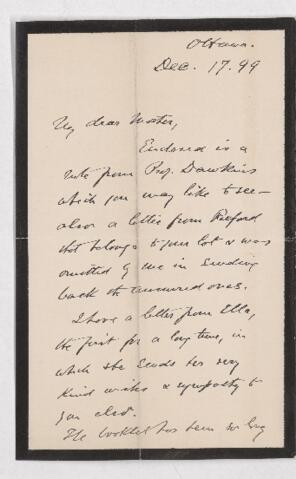 Ottawa.
Dec. 17. 99
My dear Mater,
Enclosed is a
note from Prof. Dawkins
which you may like to see —
also a letter from
that belongs to your lot & was
omitted by me in sending
back the answered ones.
I have a letter from Ella,
the first for a long time, in
which she sends her very
kind wishes & sympathy to
you also.
The booklet has been so long